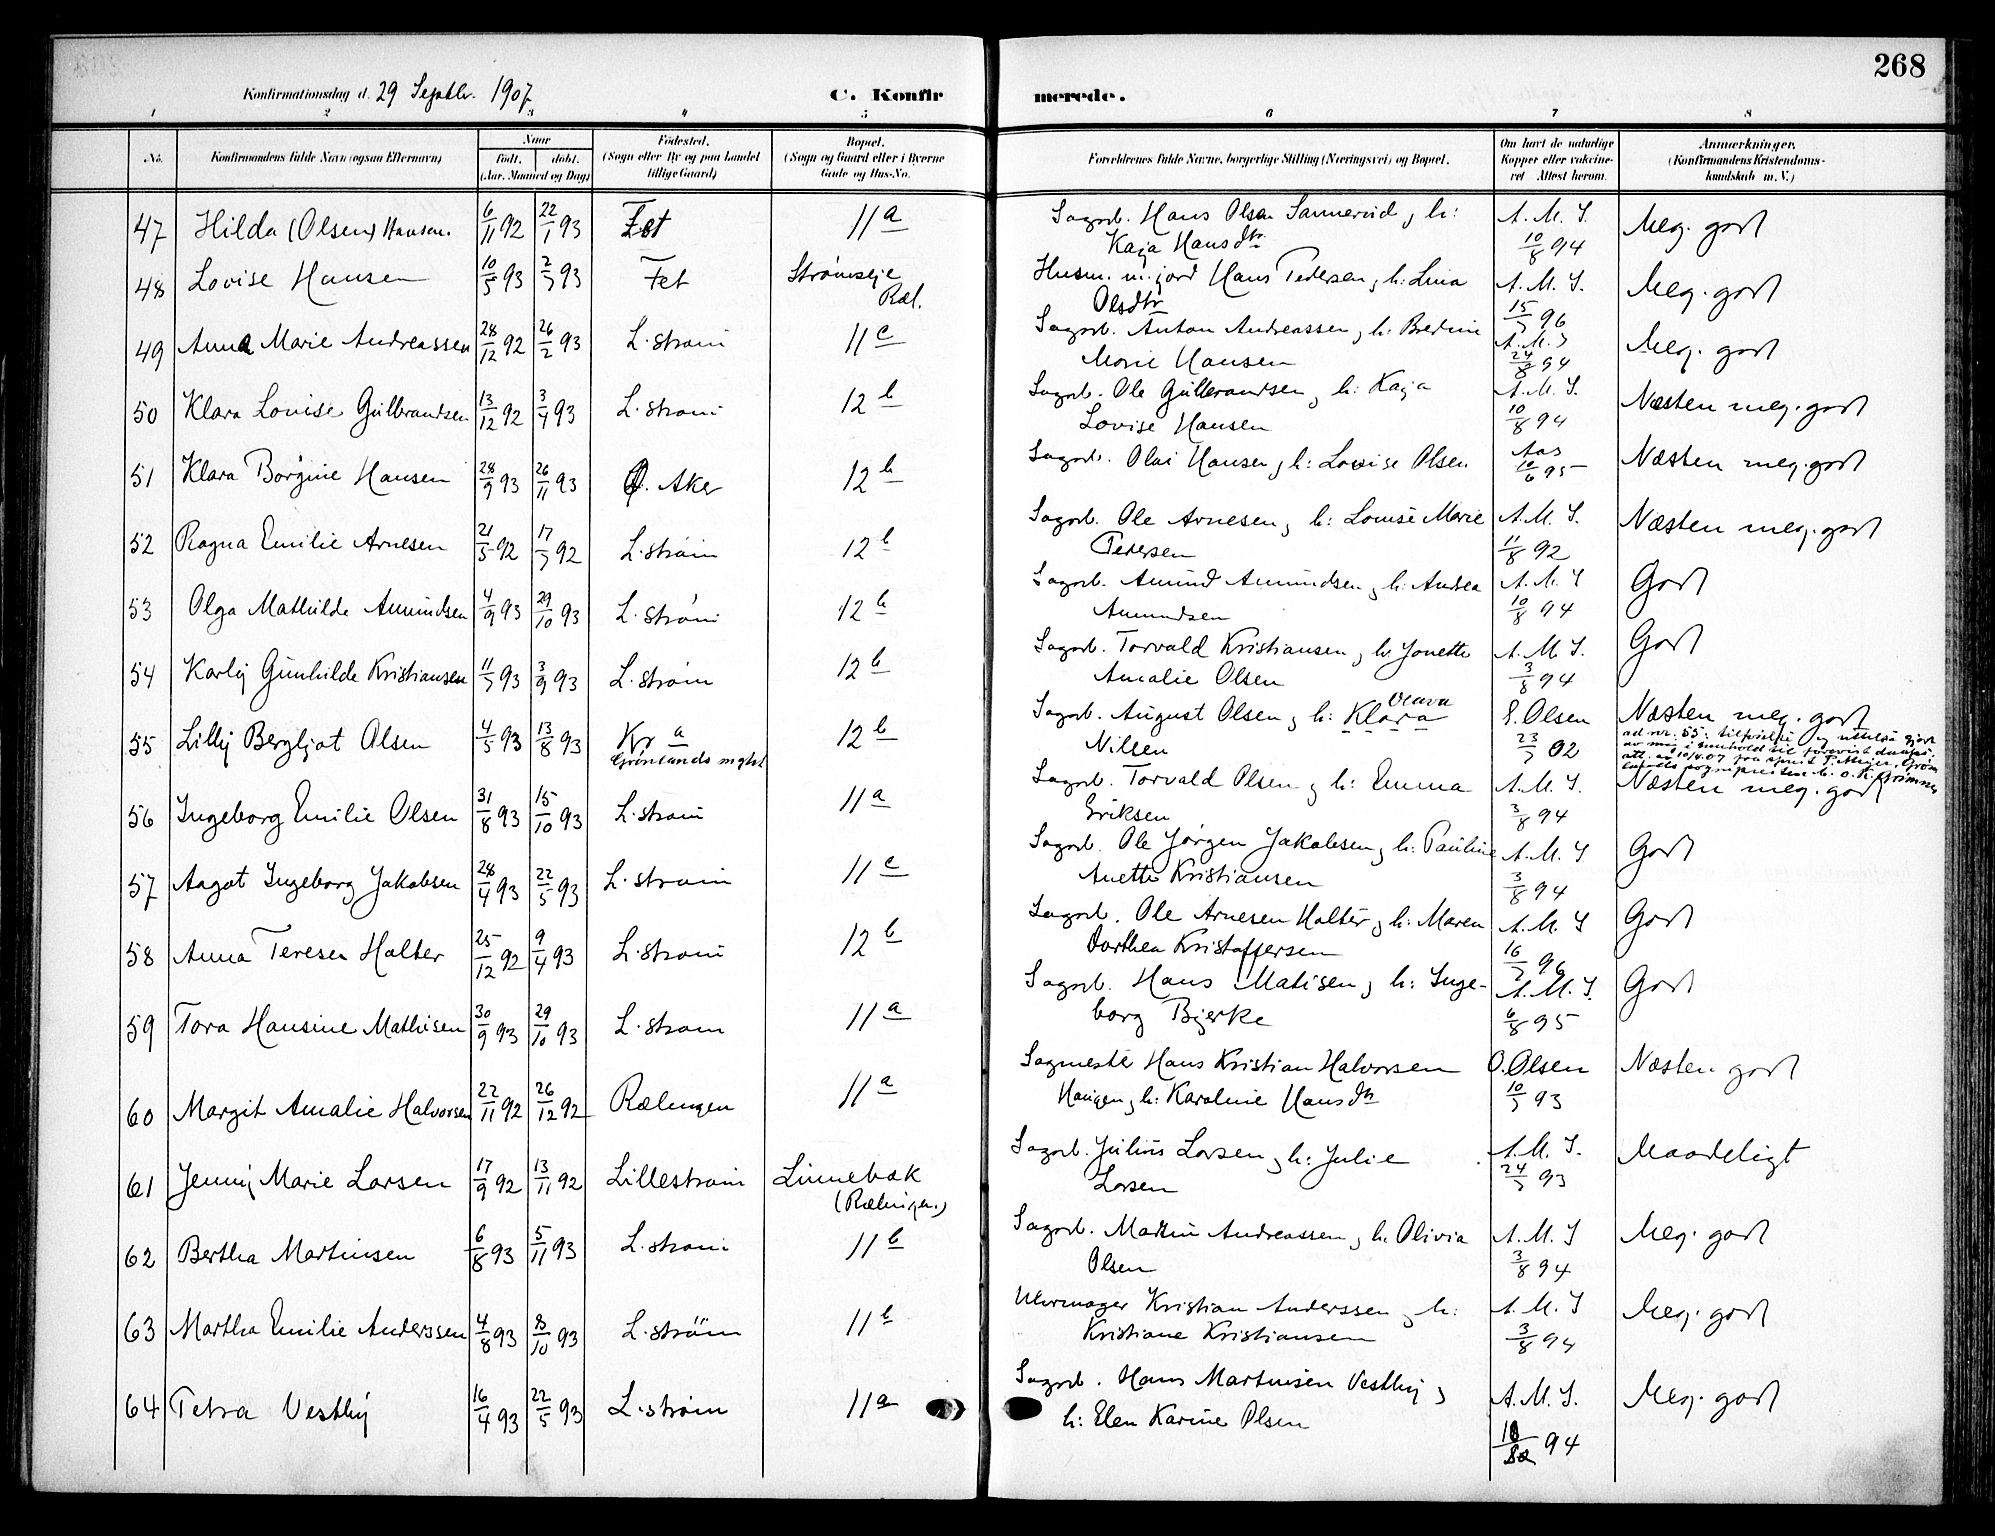 268
Konfirmationsdag d. 29 Septbr. 1907
C. Konfirmerede.
1 2 3 4 5 6 7 8
No. | Konfirmandens fulde Navn (ogsaa Efternavn) | Naar født. døbt. (Aar, Maaned og Dag) | Fødested. (Sogn eller By og paa Landet tillige Gaard) | Bopæl. (Sogn og Gaard eller i Byerne Gade og Hus-No. | Forældrenes fulde Navne, borgerlige Stilling (Næringsvei) og Bopæl. | Om havt de naturlige Kopper eller vakcineret Attest herom. | Anmerkninger. (Konfirmandens Kristendomskundskab m. V.)
47 Hilda (Olsen) Hansen. 6/11 92 22/1 93 Fet 11 a Sagarb. Hans Olsen Sannerud, h: A. M. S. Meg. godt
Kaja Hansdtr. 10/8 94
48 Lovise Hansen 10/5 93 2/7 93 Fet Strømseje Husm. m. jord Hans Pedersen, h: Lina A. M. S. Meg. godt
Ræl. Olsdtr 15/7 96
49 Anna Marie Andreassen 28/12 92 26/2 93 L.strøm 11 c Sagarb. Anton Andreassen, h: Bredine A. M. S Meg. godt
Marie Hansen 24/8 94
50 Klara Louise Gulbrandsen 13/12 92 3/4 93 L.strøm 12 b Sagarb. Ole Gulbrandsen, h: Kaja A. M. S. Næsten meg. godt
Lovise Hansen 10/8 94
51 Klara Borgine Hansen 28/9 93 26/11 93 Ø. Aker 12 b Sagarb. Olai Hansen, h: Lovise Olsen Aas Næsten meg. godt
10/6 95
52 Ragna Emilie Arnesen 21/5 92 17/7 92 L.strøm 12 b Sagarb. Ole Arnesen, h: Lovise Marie A. M. S. Næsten meg. godt
Pedersen 11/8 92
53 Olga Mathilde Amundsen 4/9 93 29/10 93 L.strøm 12 b Sagarb. Amund Amundsen, h: Andrea A. M. S Godt
Amundsen 10/8 94
54 Karly Gunhilde Kristiansen 11/7 93 3/9 93 L.strøm 12 b Sagarb. Torvald Kristiansen, h: Jonette A. M. S. Godt
Amalie Olsen 3/8 94
55 Lilly Bergljot Olsen 4/5 93 13/8 93 Kr a 12 b Sagarb. August Olsen, h: Klara Oleava S. Olsen Næsten meg. godt
Grønlands mght Nilsen 23/7 02
ad nr. 55: tilføielse og rettelse gjort
av mig i henhold til
att. av 10/4.07 fra sgpr. Grøn
lands sogn
56 Ingeborg Emilie Olsen 31/8 93 15/10 93 L.strøm 11 a Sagarb. Torvald Olsen, h: Emma A. M. S. Næsten meg. godt
Eriksen 3/8 94
57 Aagot Ingeborg Jakobsen 28/4 93 22/5 93 L.strøm 11 c Sagarb. Ole Jørgen Jakobsen, h: Pauline A. M. S Godt
Anette Kristiansen 3/8 94
58 Anna Teresen Halter 25/12 92 9/4 93 L.strøm 12 b Sagarb. Ole Arnesen Halter, h: Maren A. M. S Godt
Dorthea Kristoffersen 16/7 96
59 Tora Hansine Mathisen 30/9 93 29/10 93 L.strøm 11 a Sagarb. Hans Matisen, h: Inge- A. M. S. Godt
borg Bjerke 6/8 95
60 Margit Amalie Halvorsen 22/11 92 26/12 92 Rælingen 11 a Sagmester Hans Kristian Halvorsen O. Olsen Næsten godt
Haugen, h: Karoline Hansdtr 10/7 93
61 Jenny Marie Larsen 17/9 92 13/11 92 Lillestrøm Linnebæk Sagarb. Julius Larsen, h: Julie A. M. S. Maadeligt
(Rælingen.) Larsen 24/7 93
62 Bertha Martinsen 6/8 93 5/11 93 L.strøm 11 b Sagarb. Martin Andreassen, h: Olivia A. M. S Meg. godt
Olsen 3/8 94
63 Martha Emilie Anderssen 4/8 93 8/10 93 L.strøm 11 b Uhrmager Kristian Anderssen, h: A. M. S Meg. godt
Kristiane Kristiansen 3/8 94
64 Petra Vestby 16/4 93 22/5 93 L.strøm 11 a Sagarb. Hans Martinsen Vestby, A. M. S. Meg. godt
h: Elen Karine Olsen 10/8 94